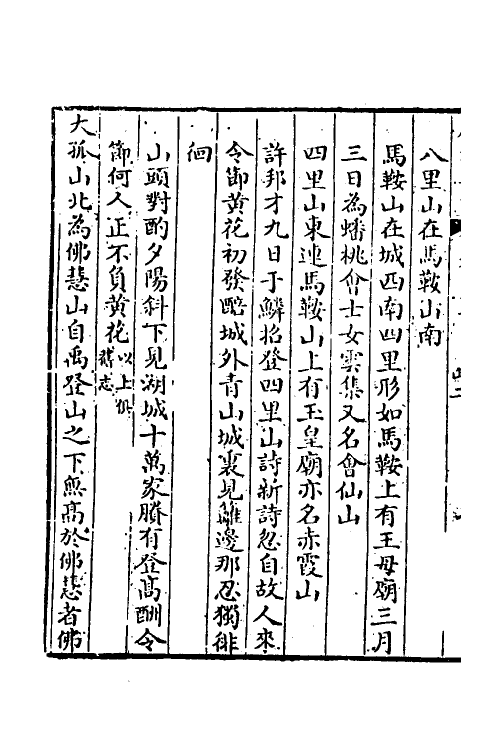 八里山在馬鞍山南
馬鞍山在城西南四里形如馬鞍上有王母廟三月
三日為蟠桃會士女雲集又名會仙山
四里山東連馬鞍山上有玉皇廟亦名赤霞山
許邦才九日于鱗招登四里山詩新詩忽自故人來
令節黄花初發醅城外青山城裏見籬邊那忍獨徘
徊
山頭對酌夕陽斜下見湖城十萬家賸有登髙酬令
節何人正不負黄花以上俱
舊志
大孤山北為佛慧山自禹登山之下無髙於佛慧者佛